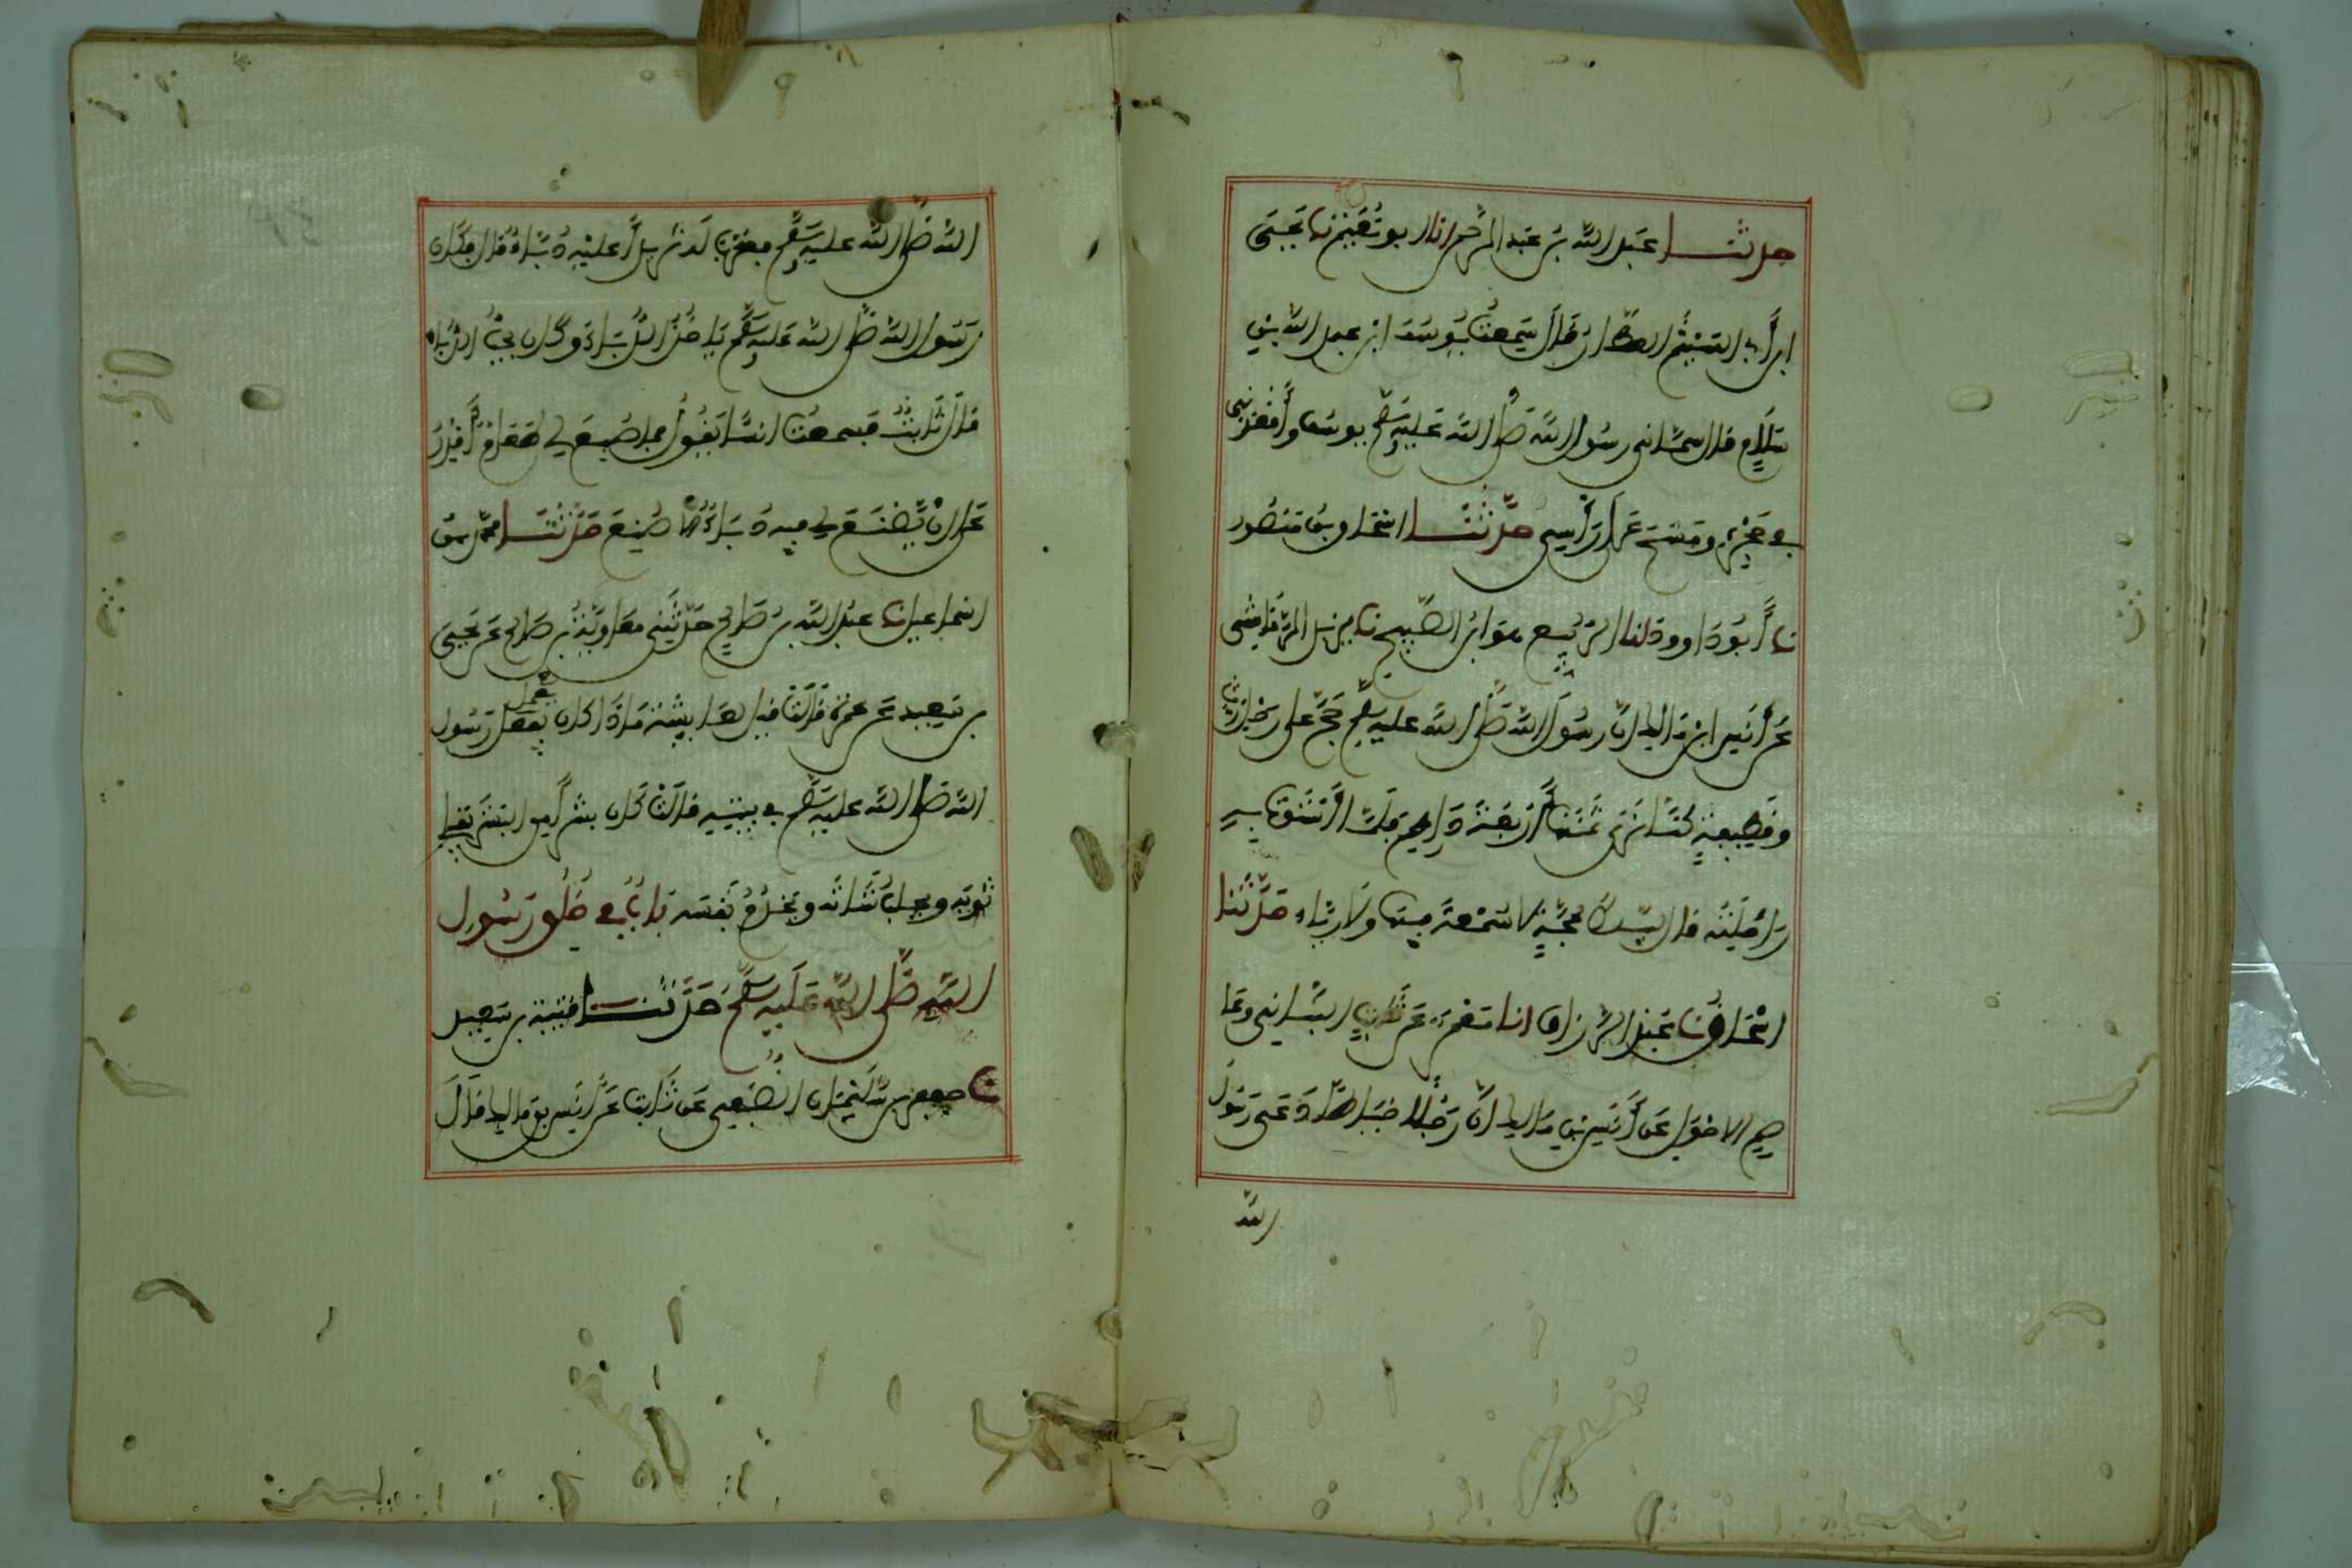 حدثنا عبد الله بن عبد الرحمن انا ابو نعيم نا يحيى
ابن أبي الهيثم العطار قال سمعت يوسف ابن عبد الله بن
سلام قال سماني رسول الله صلى الله عليه وسلم يوسف وأقعدني
في حجره ومسح على رأسي حدثنا اسحاق بن منصور
نا أبو داوود انا الربيع هو ابن الصبيح نا يزيد الرقاشي
عن أنس ابن مالك ان رسول الله صلى الله عليه وسلم حج على رحل رث
وقطيفة كنا نرى ثمنها أربعة دراهم فلما استوت به
راحلته قال لبيك بحجة لا سمعة فيها ولا رياء حدثنا
اسحاق نا عبد الرزاق انا معمر عن ثابت البناني وعا
صم الاحول عن أنس بن مالك ان رجلا خياطا دعى رسول
الله
الله صلى الله عليه وسلم فقرب له ثريدا عليه دباء قال فكان
رسول الله صلى الله عليه وسلم ياخذ الدباء وكان يحب الدباء
قال ثابت فسمعت انسا يقول فما صنع لي طعام أقدر
على ان يصنع لي فيه دباء الا صنع حدثنا محمد بن
اسماعيل نا عبد الله بن صالح حدثني معاوية بن صالح عن يحيى
بن سعيد عن عمرة قالت قيل لعائشة ماذا كان يعمل يفعل رسول
الله صلى الله عليه وسلم في بيته قالت كان بشر امن البشر يفلي
ثوبه ويحلب شاته ويخدم نفسه باب في خلق رسول
الله صلى الله عليه وسلم حدثنا قتيبة بن سعيد
نا جعفر بن سليمان الضبعي عن ثابت عن أنس بن مالك قال